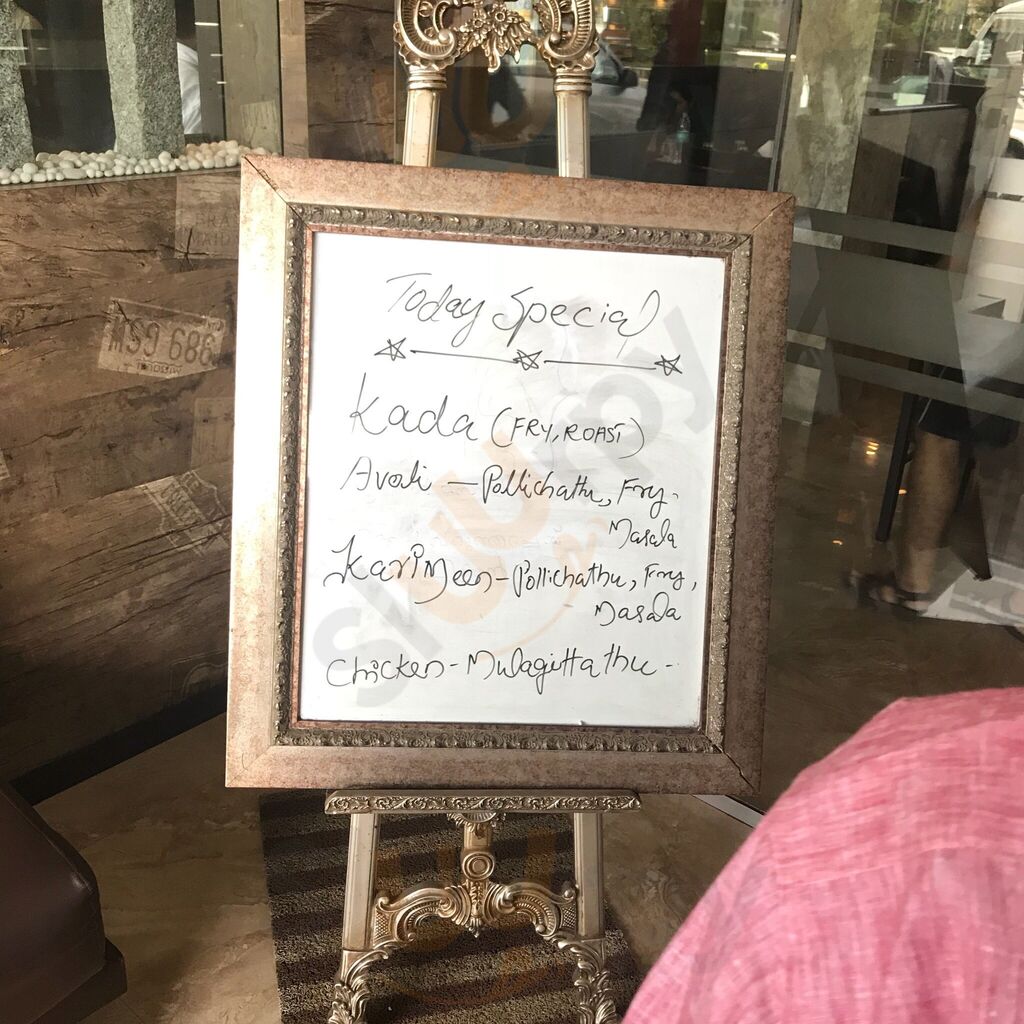 Today Special
Kada (FRY, ROAST)
Avoli – Pollichathu, Fry.
Masala
Karimeen – Pollichathu, Fry,
Masala
Chicken – Mulagittathu -
MS9 686
slurrpy